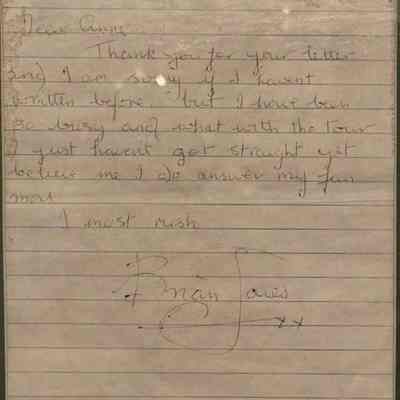 Dear Anne
Thank you for your letter
and I am sorry if I havent
written before. but I have been
so busy and what with the tour
I just havent got straight yet
believe me I do answer my fan
mail
I must rush
Brian Jones
xx